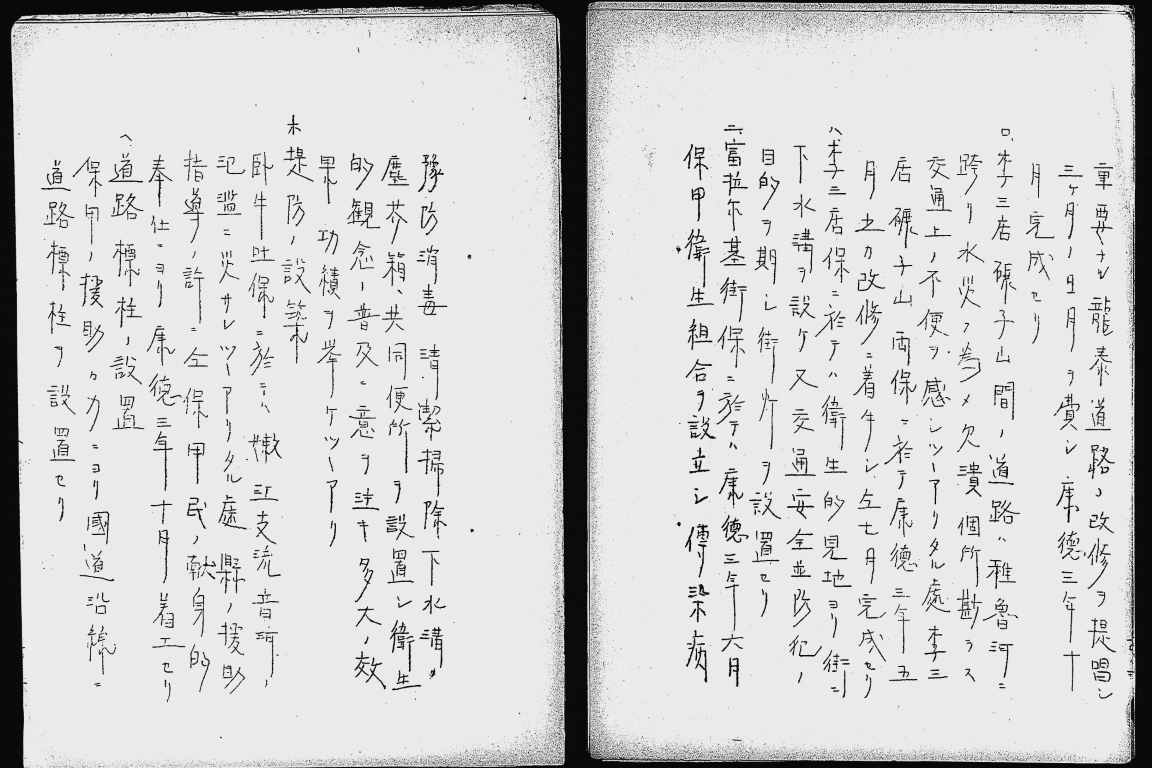 重要ナル龍泰道路ノ改修ヲ提唱シ
三ケ月ノ日月ヲ費シ康徳三年十
月完成セリ
ロ、李三店碾子山間ノ道路ハ雅魯河ニ
跨リ水災ノ為メ欠潰個所尠ラス
交通上ノ不便ヲ感シツーアリタル處李三
店碾子山両保ニ於テ康徳三年五
月之カ改修ニ着手シ仝七月完成セリ
ハ、李三店保ニ於テハ衛生的見地ヨリ街ニ
下水溝ヲ設ケ又交通安全並防犯ノ
目的ヲ期シ街灯ヲ設置セリ
ニ、富拉尓基街保ニ於テハ康徳三年六月
保甲衛生組合ヲ設立シ傳染病
豫防消毒清潔掃除下水溝、
塵芥箱、共同便所ヲ設置シ衛生
的観念ノ普及ニ意ヲ注キ多大ノ效
果ト功績ヲ挙ケツーアリ
ホ、提防ノ設築
臥牛吐保ニ於テハ嫩江支流音河ノ
氾濫ニ災サレツーアリタル處縣ノ援助
指導ノ許ニ仝保甲民ノ献身的
奉仕ニヨリ康徳三年十月着工セリ
ヘ、道路標柱ノ設置
保甲ノ援助カニヨリ國道沿線ニ
道路標柱ヲ設置セリ